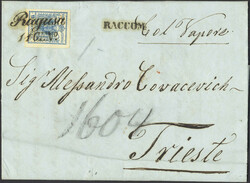 Ragusa
RACCOM:
Col Vapore
Sig.r Alessandro Covacevich
1604
Trieste